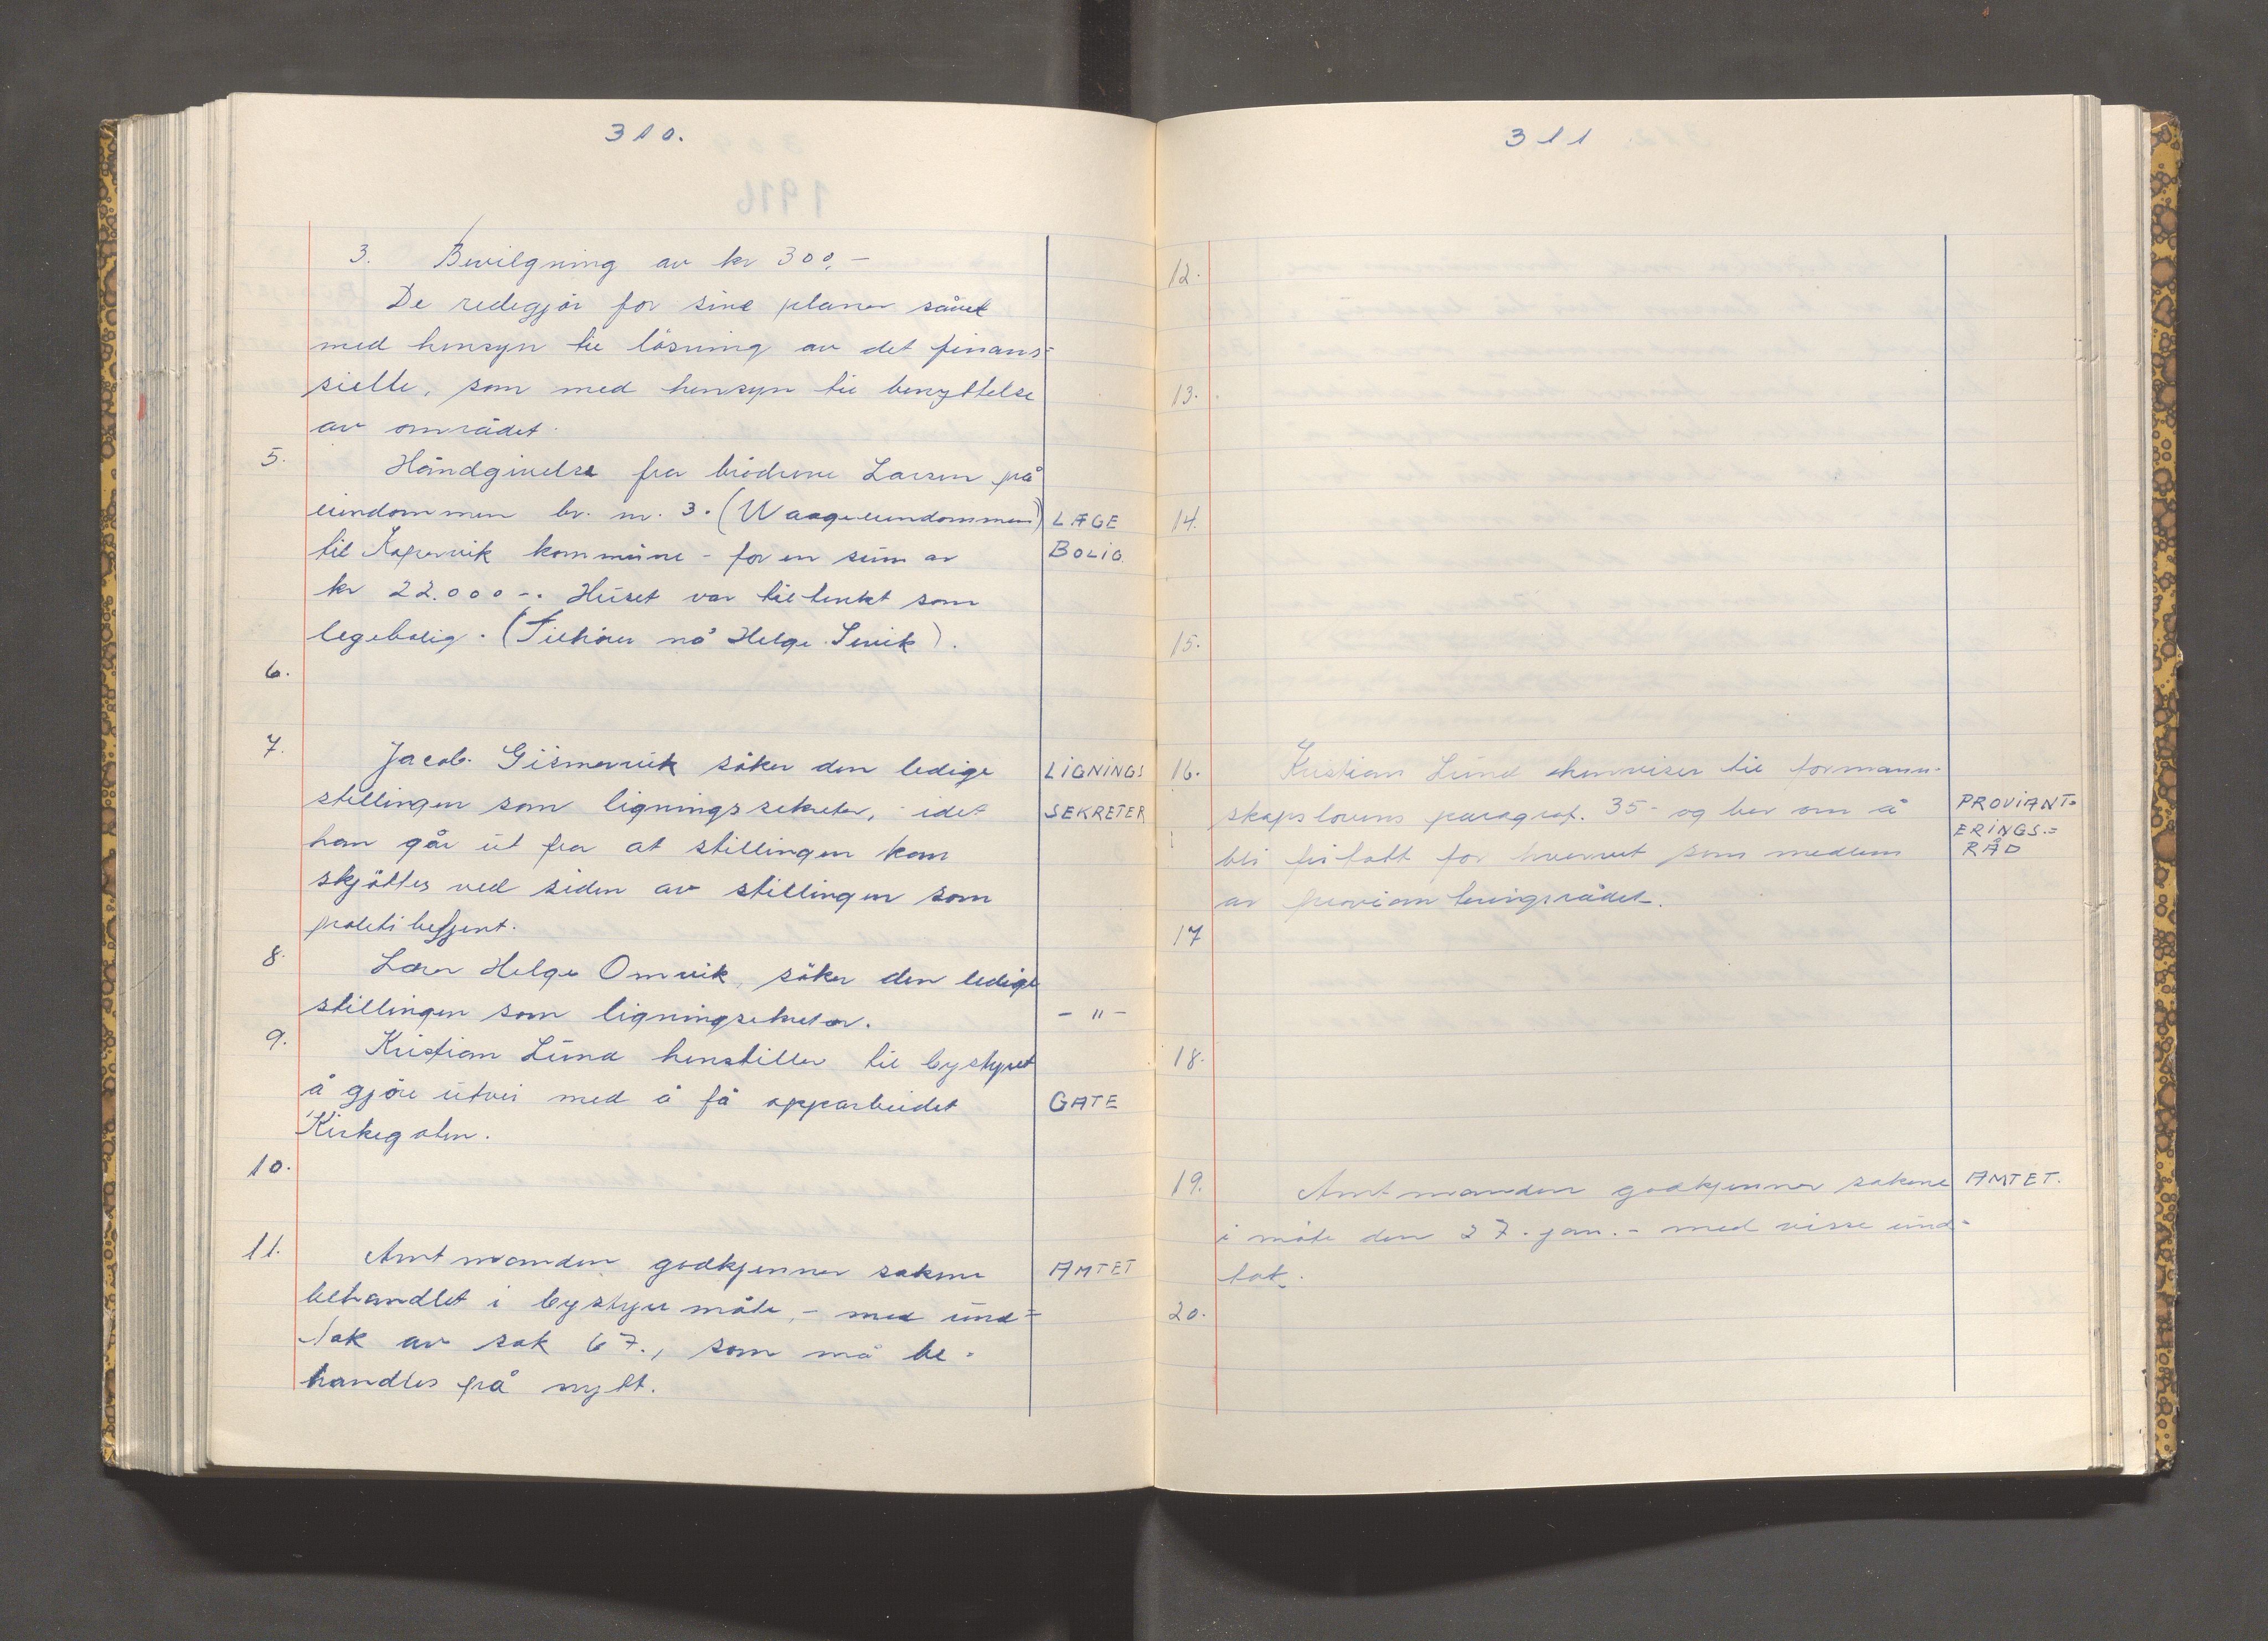 310.
3. Bevilgning av kr 300,-
De redegjör for sine planer såvel
med hensyn til lösning av det finans=
sielle, som med hensyn til benyttelse
av området.
5. Håndgivelse fra brödrene Larsen på
eiendommen br. nr. 3. (Waage eiendommen) LÆGE
til Kopervik kommune - for en sum av BOLIG.
kr 22.000-. Huset var tiltenkt som
legebolig. (Tilhörer nå Helge ).
6.
7. Jacob. Gismervik söker den ledige LIGNINGS
stillingen som ligningssekreter, - idet SEKRETER
han går ut fra at stillingen kan
skjöttes ved siden av stillingen som
politibetjent.
8. Lærer Helge Omvik, söker den ledige
stillingen som ligningsekreter. - " -
9. Kristian Lund henstiller til bystyret
å gjöre utvei med å få opparbeidet GATE
Kirkegaten.
10.
11. Amtmanden godkjenner sakene AMTET
behandlet i bystyre möte, - med und=
tak av sak 67., som må be-
handles på nytt.
311
12.
13.
14.
15.
16. Kristian Lund henviser til formann-
skapslovens paragraf. 35- og ber om å PROVIANT=
bli fritatt for hvervet som medlem ERINGS.=
RÅD
av provianteringsrådet.
17
18.
19. Amtmanden godkjenner sakene AMTET.
i möte den 27. jan. - med visse und=
tak.
20.